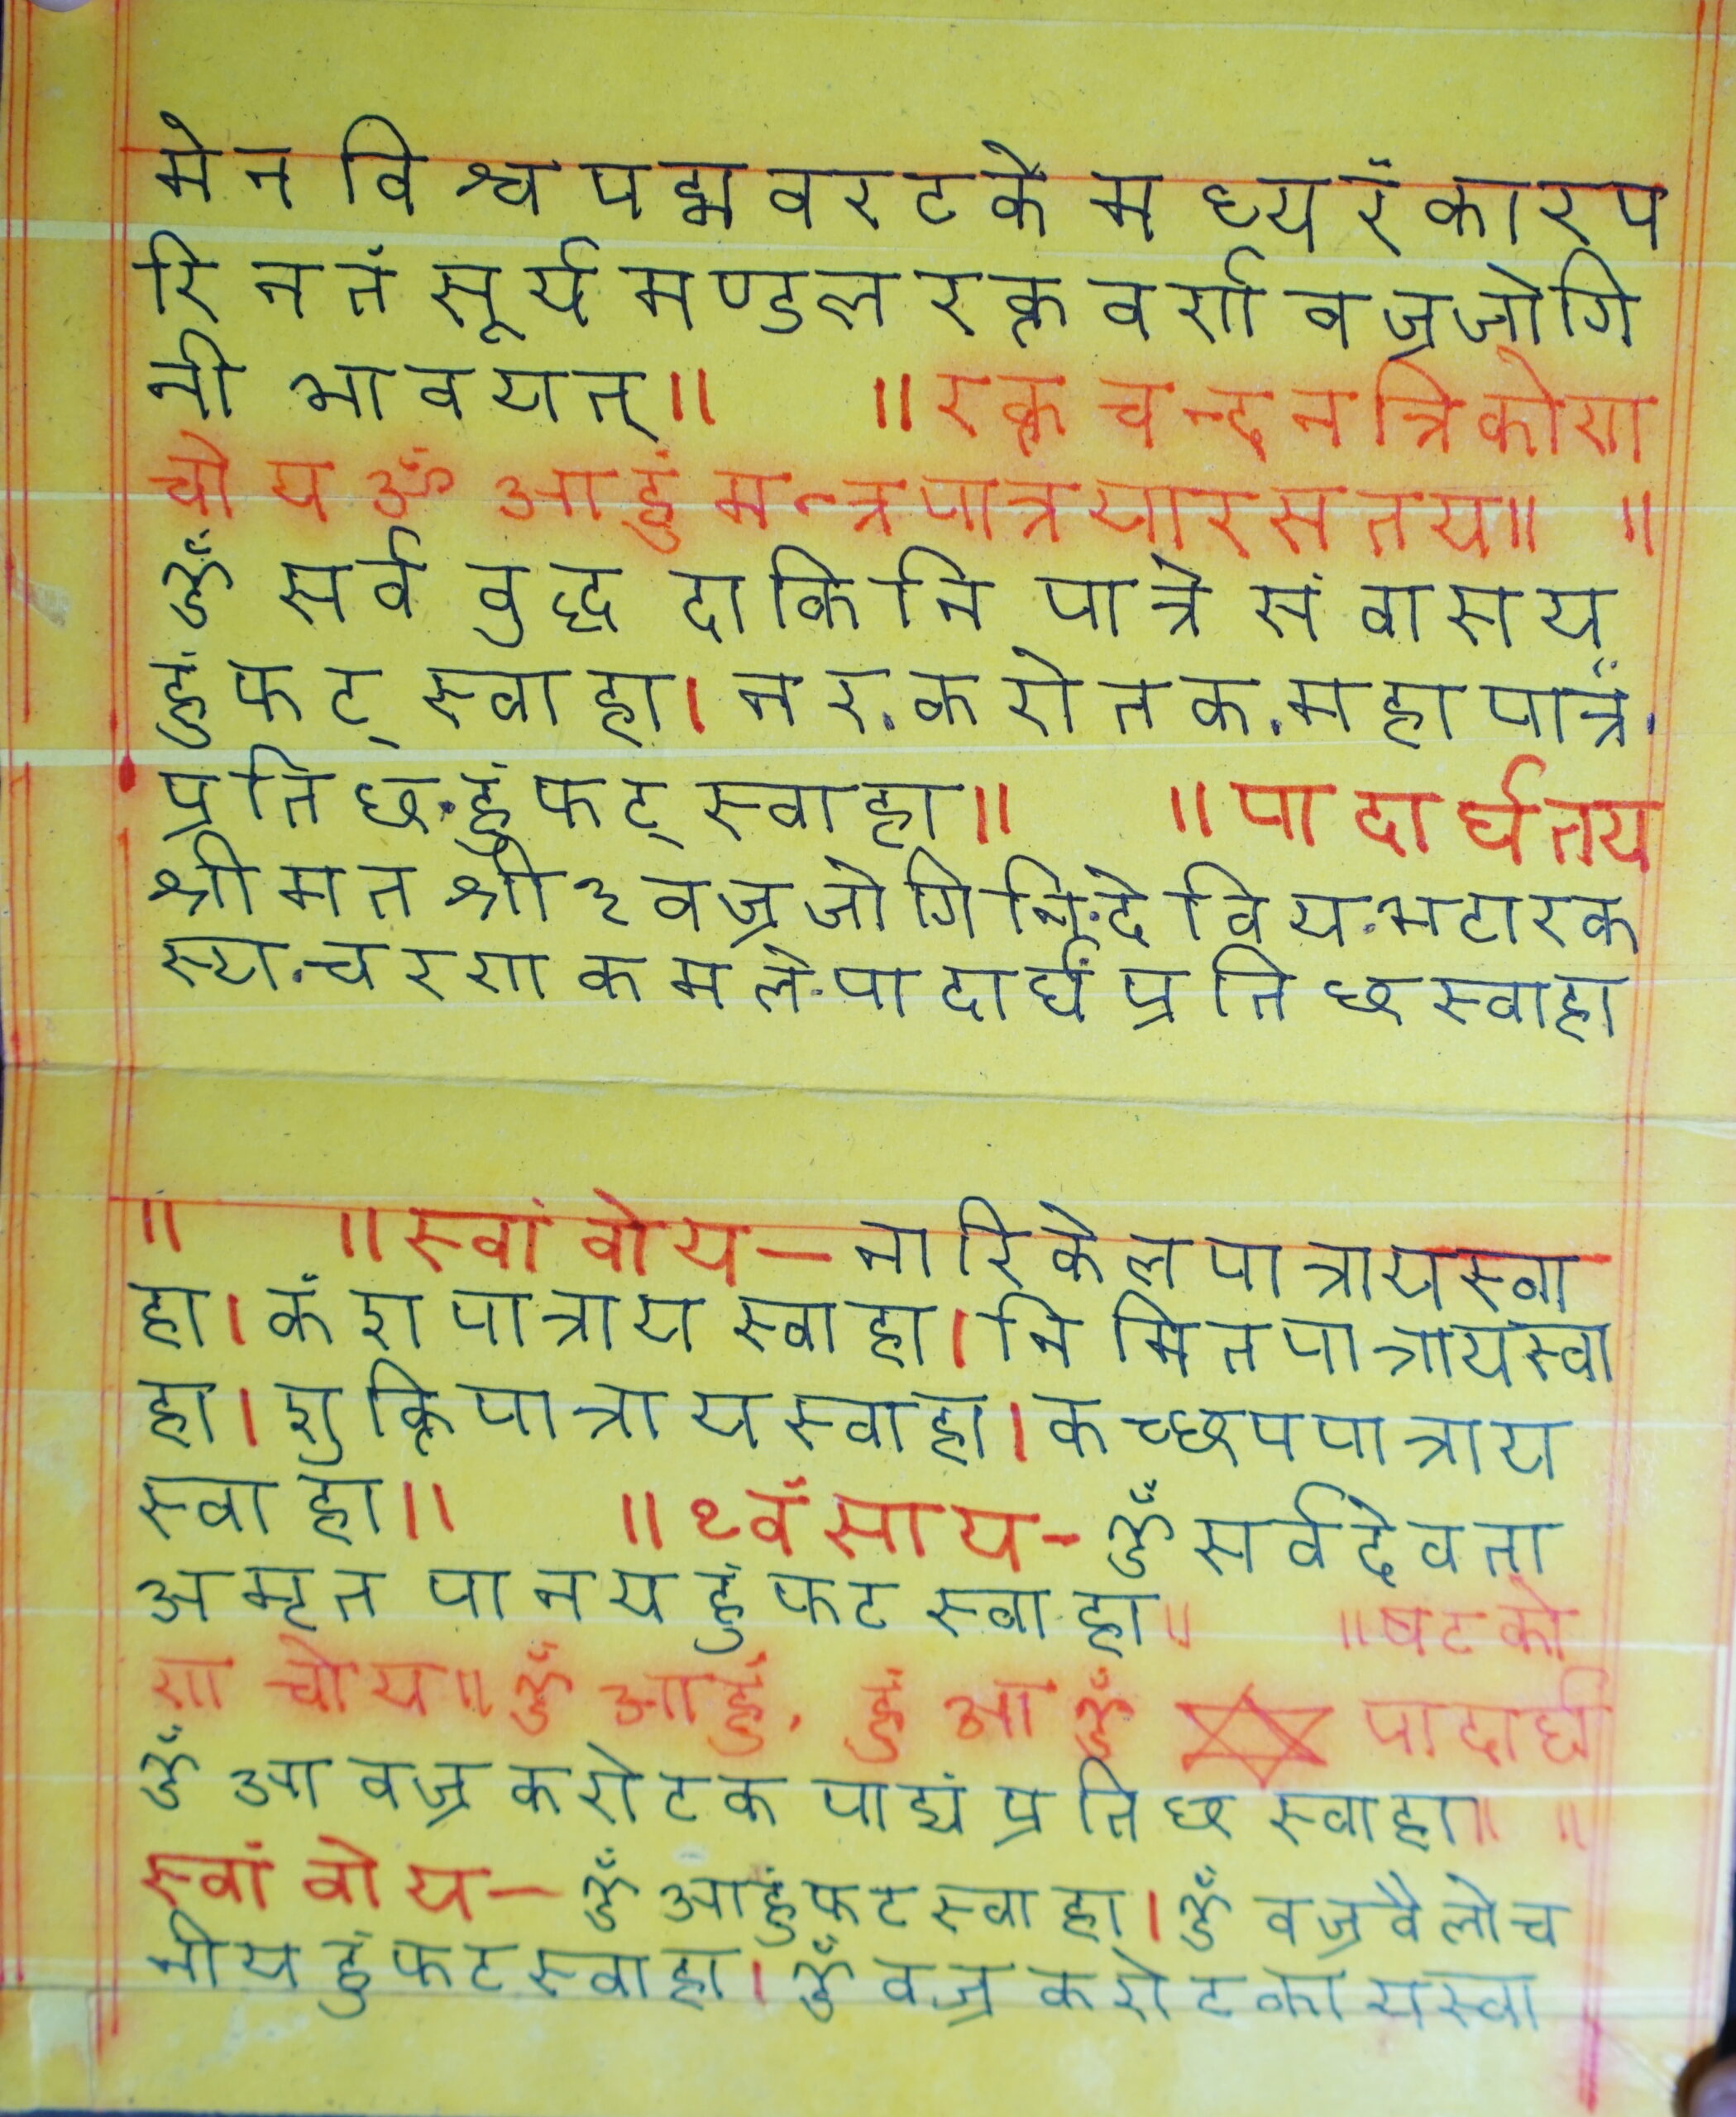 मेन विश्व पद्म वरटके मध्य रँकारप
रि नतँ सूर्य मण्डल रक्त वर्ण वज्रजोगि
नी भावयत्॥ ॥रक्त चन्दन त्रिकोण
चोय ॐ आहुं मन्त्रपात्रयारसतय॥ ॥
ॐ सर्व वुद्ध दाकिनि पात्रे संवासय्
हुंफट् स्वाहा। नर.करोतक.महापात्रं.
प्रतिछ.हुंफट् स्वाहा॥ ॥पादार्घतय
श्रीमत श्री३वज्रजोगिनि.देविय.भटारक
स्य.चरणकमले.पादार्घं प्रतिछ स्वाहा
॥ ॥स्वां वोय— नारिकेलपात्रायस्वा
हा। कँशपात्राय स्वाहा। निमितपात्रायस्वा
हा। शुक्तिपात्रायस्वाहा। कच्छपपात्राय
स्वाहा॥ ॥थ्वँसाय- ॐ सर्वदेवता
अमृत पानय हुं फट स्वाहा॥ ॥षटको
ण चोय॥ ॐ आहुं, हुं आ ॐ पादार्घ
ॐ आ वज्र करोटक पाद्यं प्रतिछ स्वाहा॥ ॥
स्वां वोय— ॐ आहुंफटस्वाहा। ॐ वज्रवैलोच
नीय हुंफटस्वाहा। ॐ वज्र करोटकायस्वा